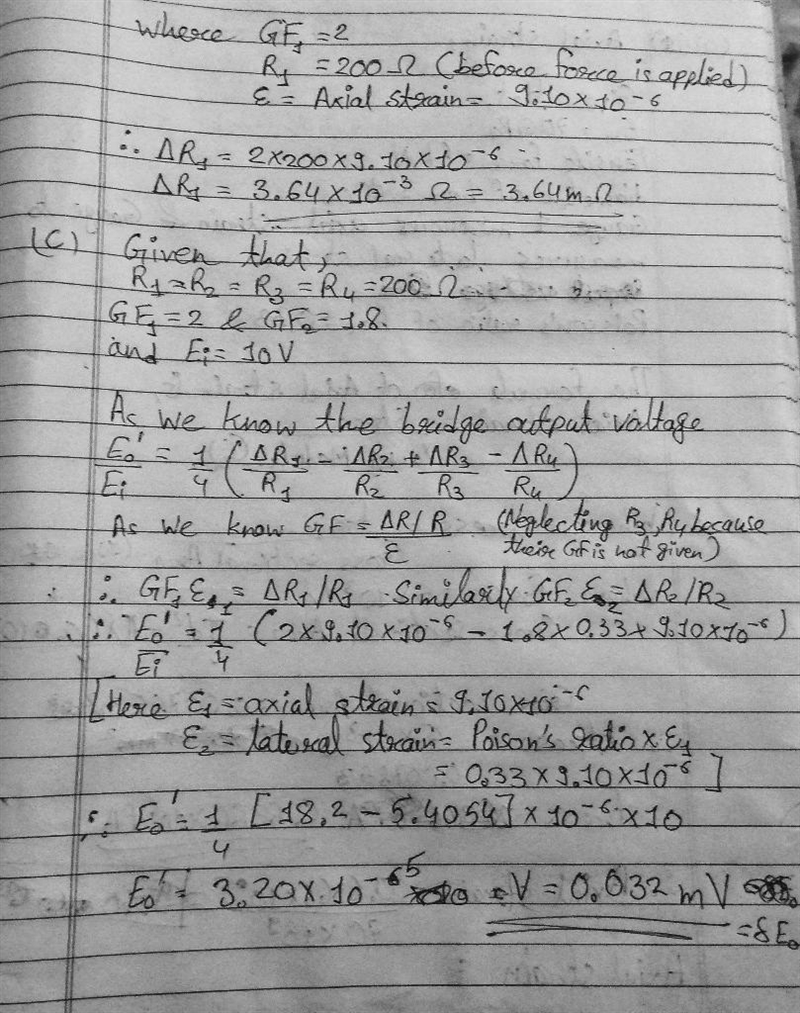 Where GF₁ = 2
R₁ = 200 Ω (before force is applied)
ε = Axial strain = 9.10 × 10⁻⁶
∴ ΔR₁ = 2×200×9.10×10⁻⁶
ΔR₁ = 3.64 × 10⁻³ Ω = 3.64 m Ω
(C) Given that,
R₁ = R₂ = R₃ = R₄ = 200 Ω
GF₁ = 2 & GF₂ = 1.8.
and Ei = 10V
As we know the bridge output voltage
Eo'/Ei = 1/4 (ΔR₁/R₁ - ΔR₂/R₂ + ΔR₃/R₃ - ΔR₄/R₄)
As we know GF = ΔR/R / ε (Neglecting R₃, R₄ because
their GF is not given)
∴ GF₁ ε₁ = ΔR₁/R₁ Similarly GF₂ ε₂ = ΔR₂/R₂
∴ Eo'/Ei = 1/4 (2×9.10×10⁻⁶ - 1.8×0.33×9.10×10⁻⁶)
[Here ε₁ = axial strain = 9.10×10⁻⁶
ε₂ = lateral strain = Poison's ratio × ε₁
= 0.33 × 9.10×10⁻⁶ ]
∴ Eo' = 1/4 [18.2 - 5.4054] × 10⁻⁶ × 10
Eo' = 3.20 × 10⁻⁵ V = 0.032 mV
= δEo